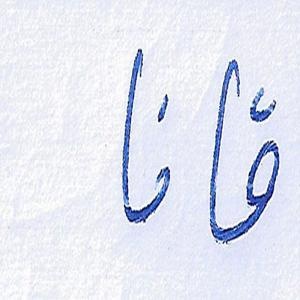 قانا